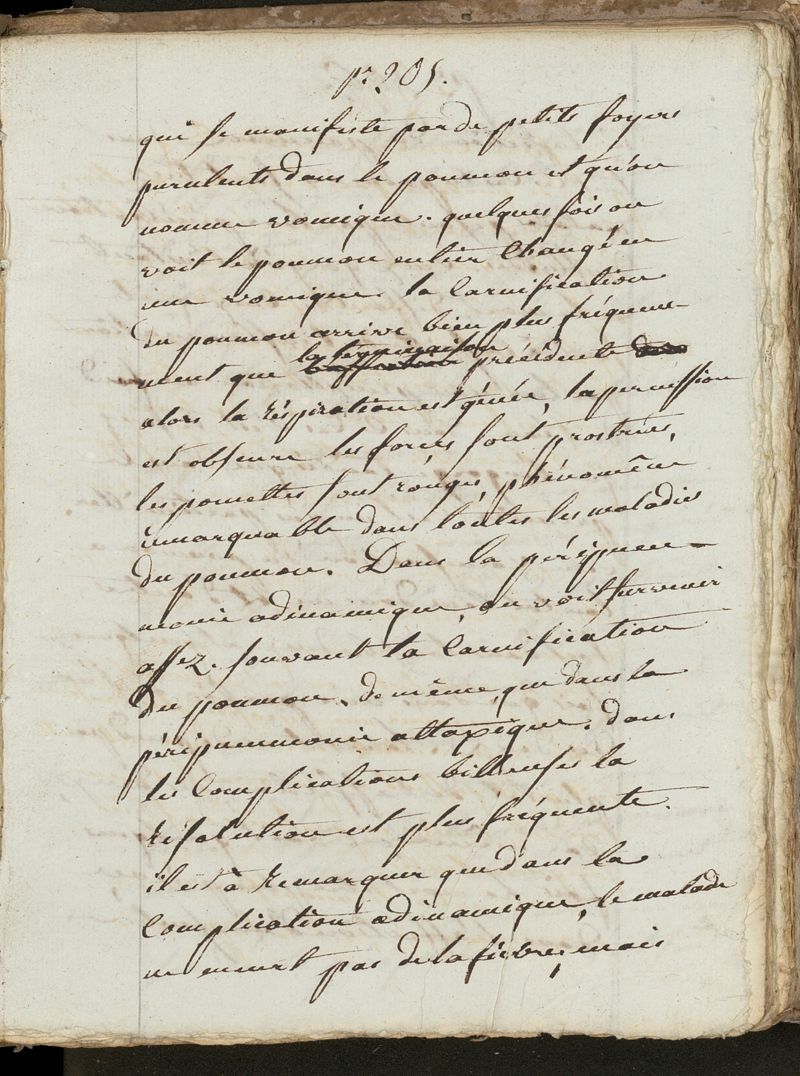 pr. 205.
qui se manifeste par de petits foyers
purulents dans le poumon et qu'on
nomme vomique. quelques fois on
voit le poumon entier changé en
une vomique. la carnification
du poumon arrive bien plus fréquem-
ment que la terminaison précédente
alors la réspiration est génée, la percussion
est obscure les forces sont prostrées,
les pomettes sont rouges, phénomêne
remarquable dans toutes les maladies
du poumon. Dans la péripneu-
monie adinamique, on voit survenir
assez. souvant la carnification
du poumon, de même, que dans la
péripneumonie attaxique. dans
les complications billeuses la
résolution est plus fréquente.
il est à remarquer que dans la
complication adinamique, le malade
ne meurt pas de la fièvre, mais